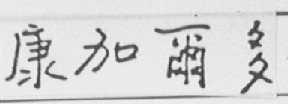 康加爾多